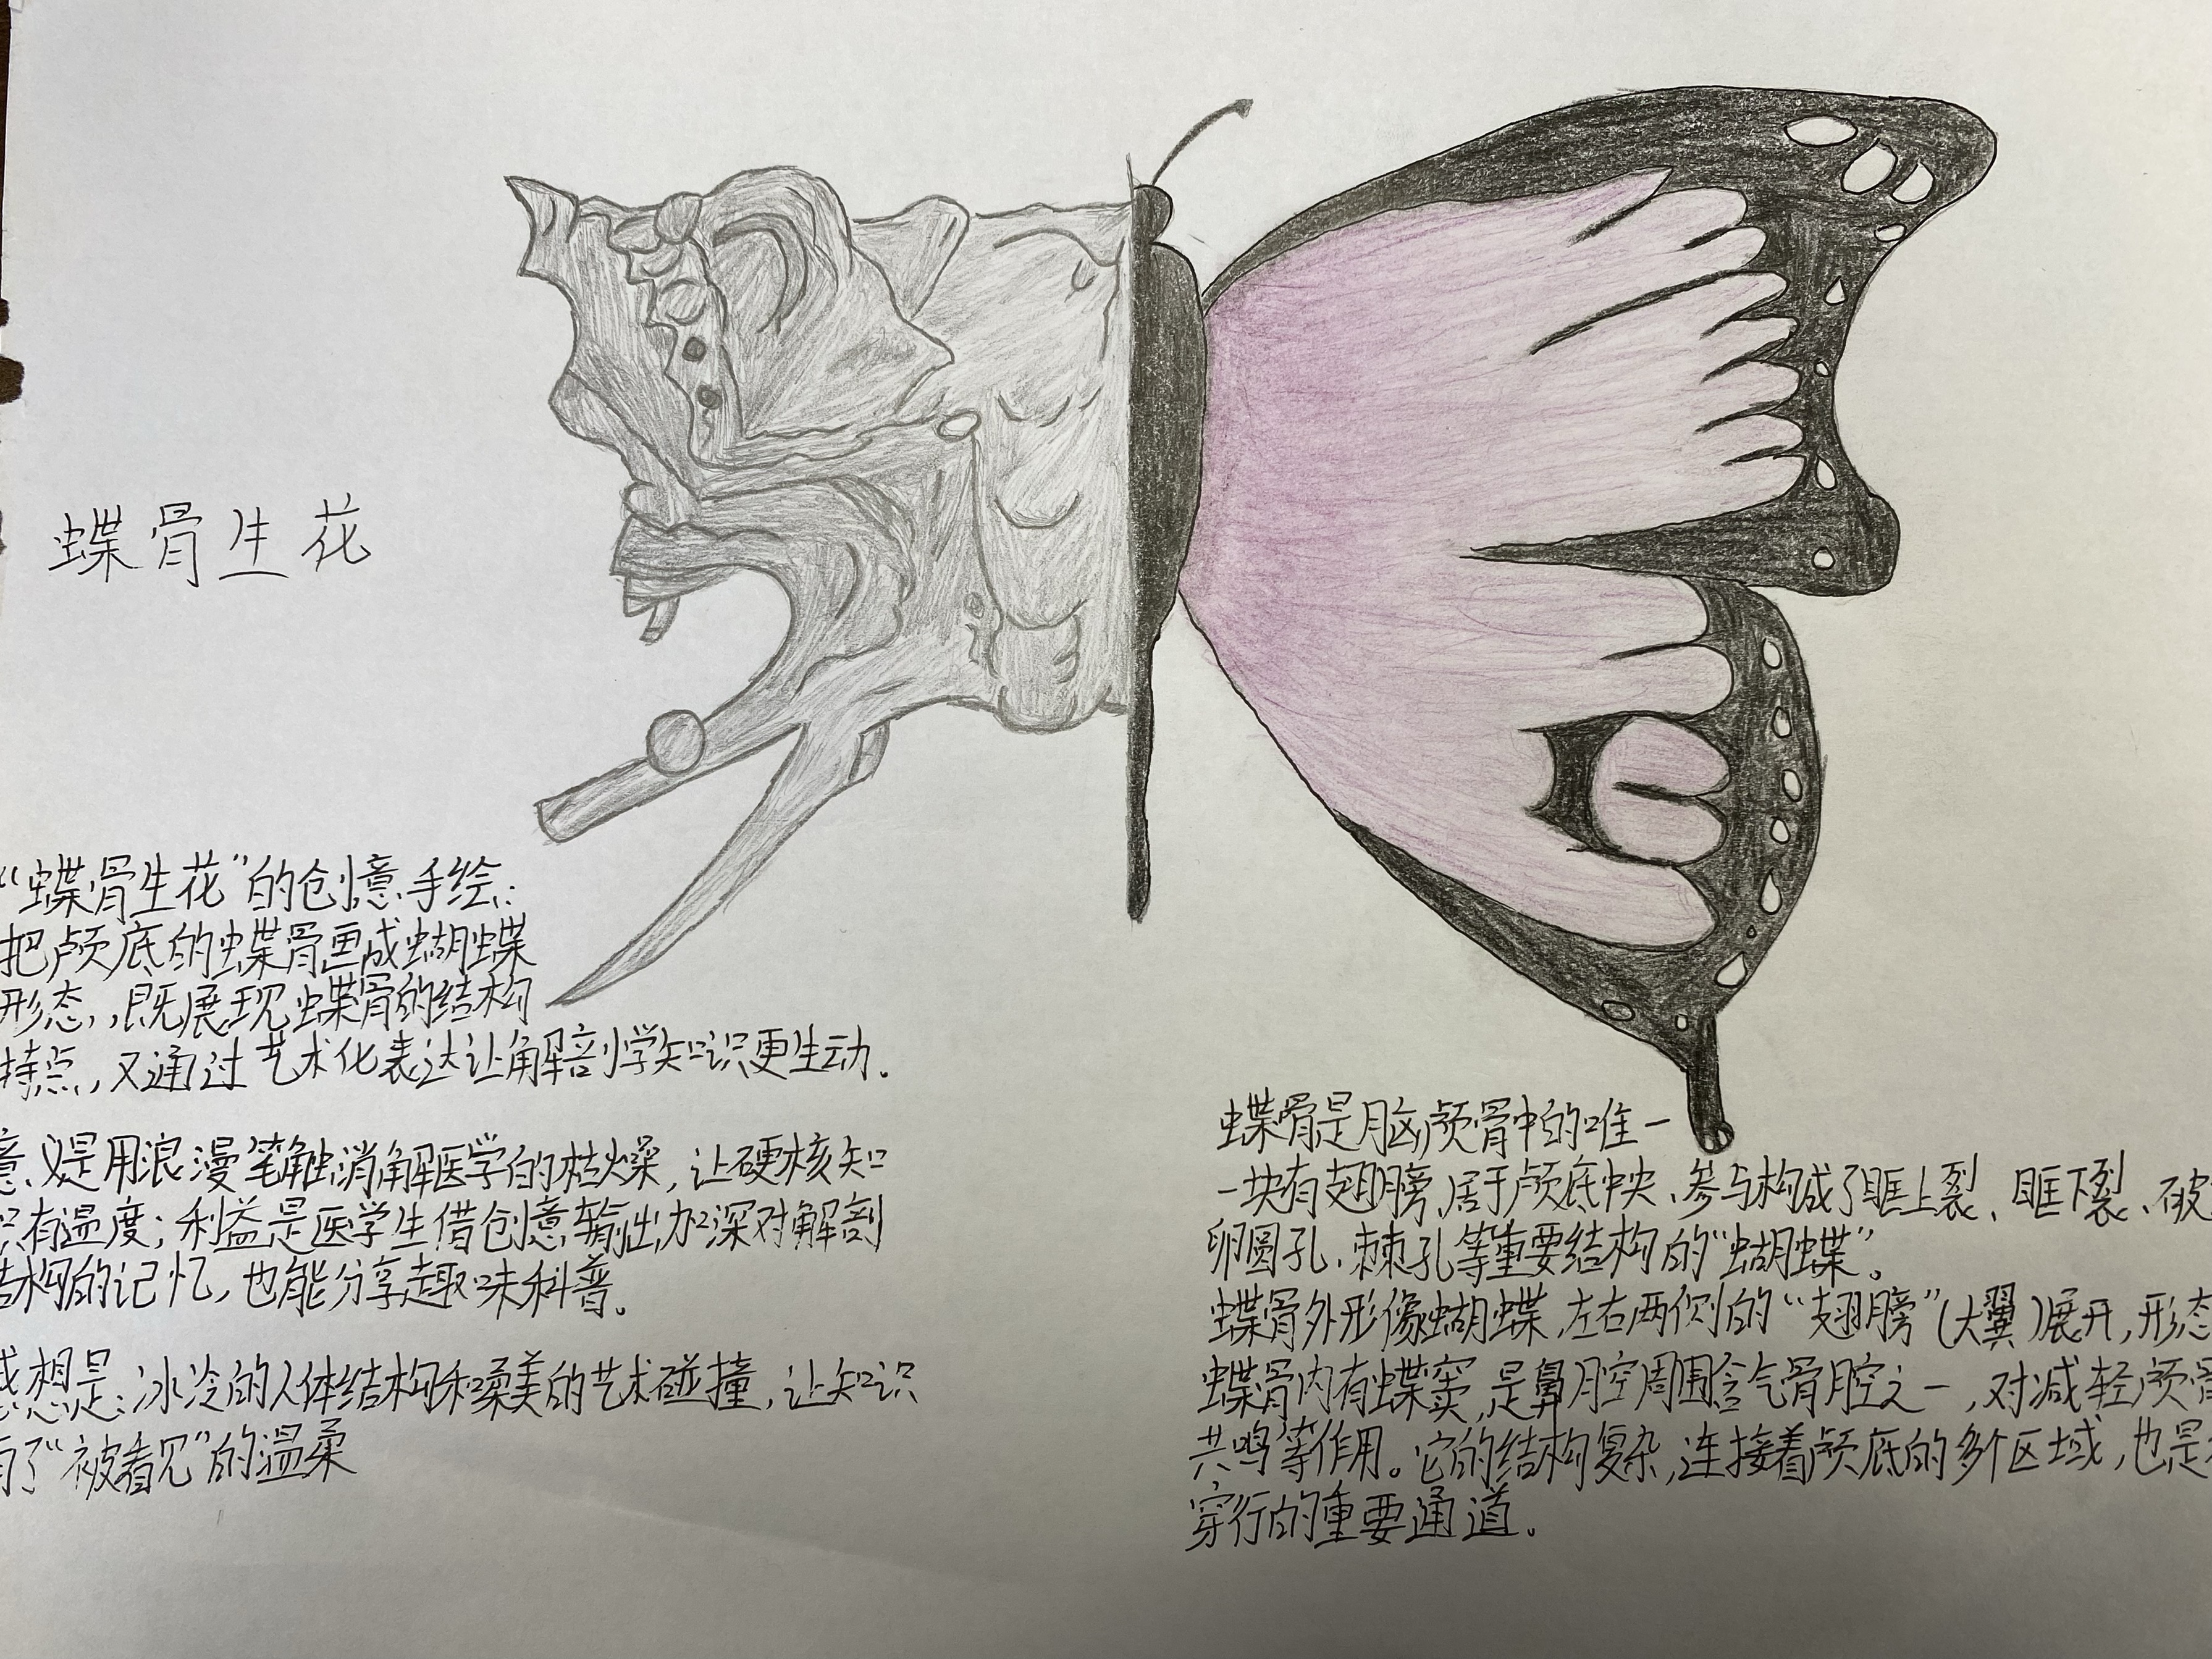 蝶骨生花
“蝶骨生花”的创意手绘:
把颅底的蝶骨画成蝴蝶
形态,既展现蝶骨的结构
特点,又通过艺术化表达让解剖学知识更生动。
意义是用浪漫笔触消解医学的枯燥,让硬核知
识有温度;利益是医学生借创意输出加深对解剖
结构的记忆,也能分享趣味科普。
感想是:冰冷的人体结构和柔美的艺术碰撞,让知识
有了“被看见”的温柔
蝶骨是脑颅骨中的唯一
一块有翅膀,居于颅底中央、参与构成了眶上裂、眶下裂、破
卵圆孔、棘孔等重要结构的“蝴蝶”。
蝶骨外形像蝴蝶,左右两侧的“翅膀”(大翼)展开,形态
蝶骨内有蝶窦,是鼻腔周围含气骨腔之一,对减轻颅骨
共鸣等作用。它的结构复杂,连接着颅底的多个区域,也是
穿行的重要通道。